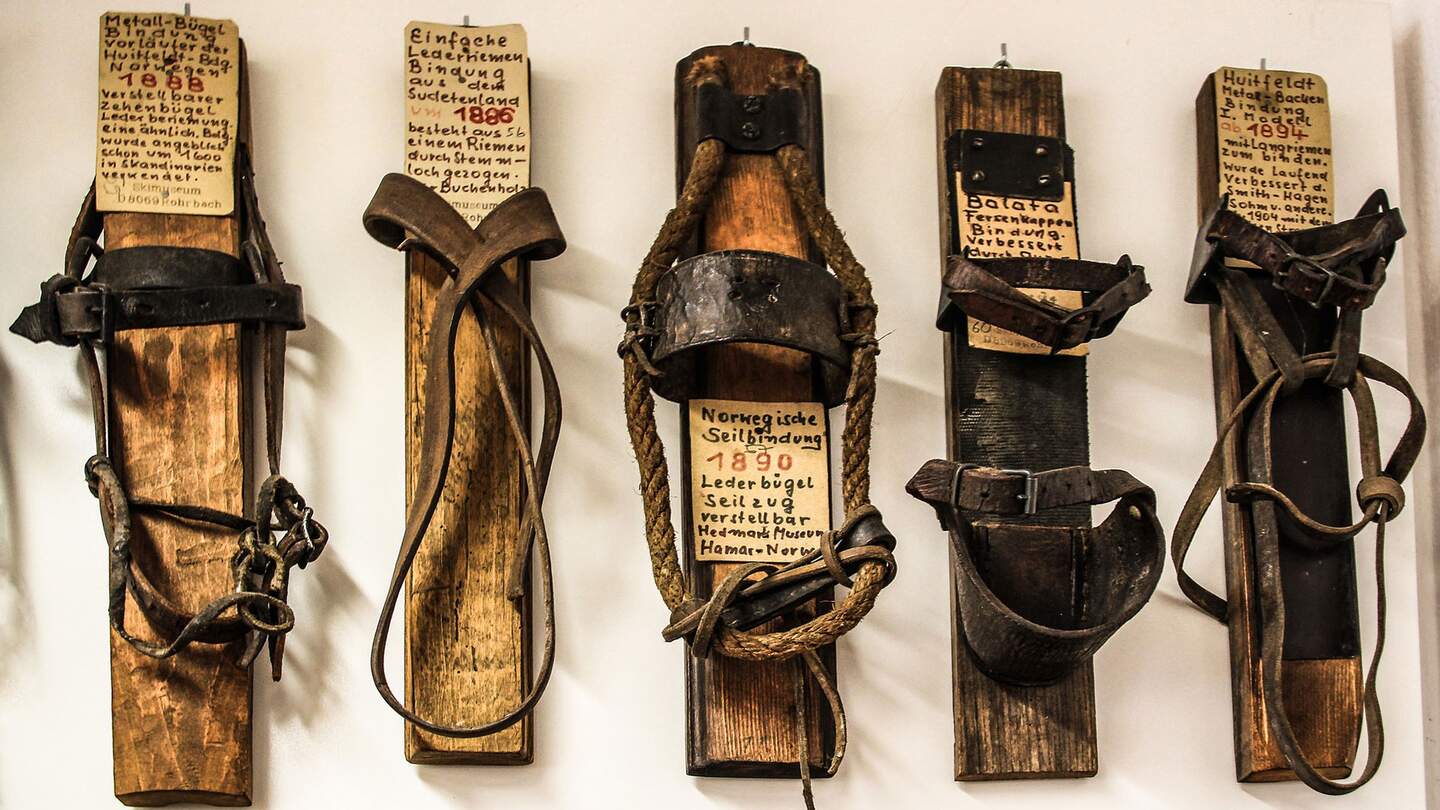 Metall-Bügel
Bindung
vorläufer der
Huitfeldt-Bdg.
Norwegen
1888
verstellbarer
zehenbügel
Lederberiemung
eine ähnlich. Bdg.
wurde angeblich
schon um 1600
in Skandinavien
verwendet.
Skimuseum
D8069 Rohrbach
Einfache
Lederriemen
Bindung
aus dem
Sudetenland
um 1886
besteht aus
einem Riemen
durch Stemm-
loch gezogen.
Buchenholz
Norwegische
Seilbindung
1890
Lederbügel
Seilzug
verstellbar
Hedmark Museum
Hamar-Norw
Balata
Fersenkappen
Bindung.
Verbessert
durch
60
D8069
Huitfeldt
Metall-Backen
Bindung
I. Modell
ab 1894
mit Langriemen
zum binden.
Wurde laufend
Verbessert d.
Smith-Hagen
Sohm u. andere.
1904 mit dem